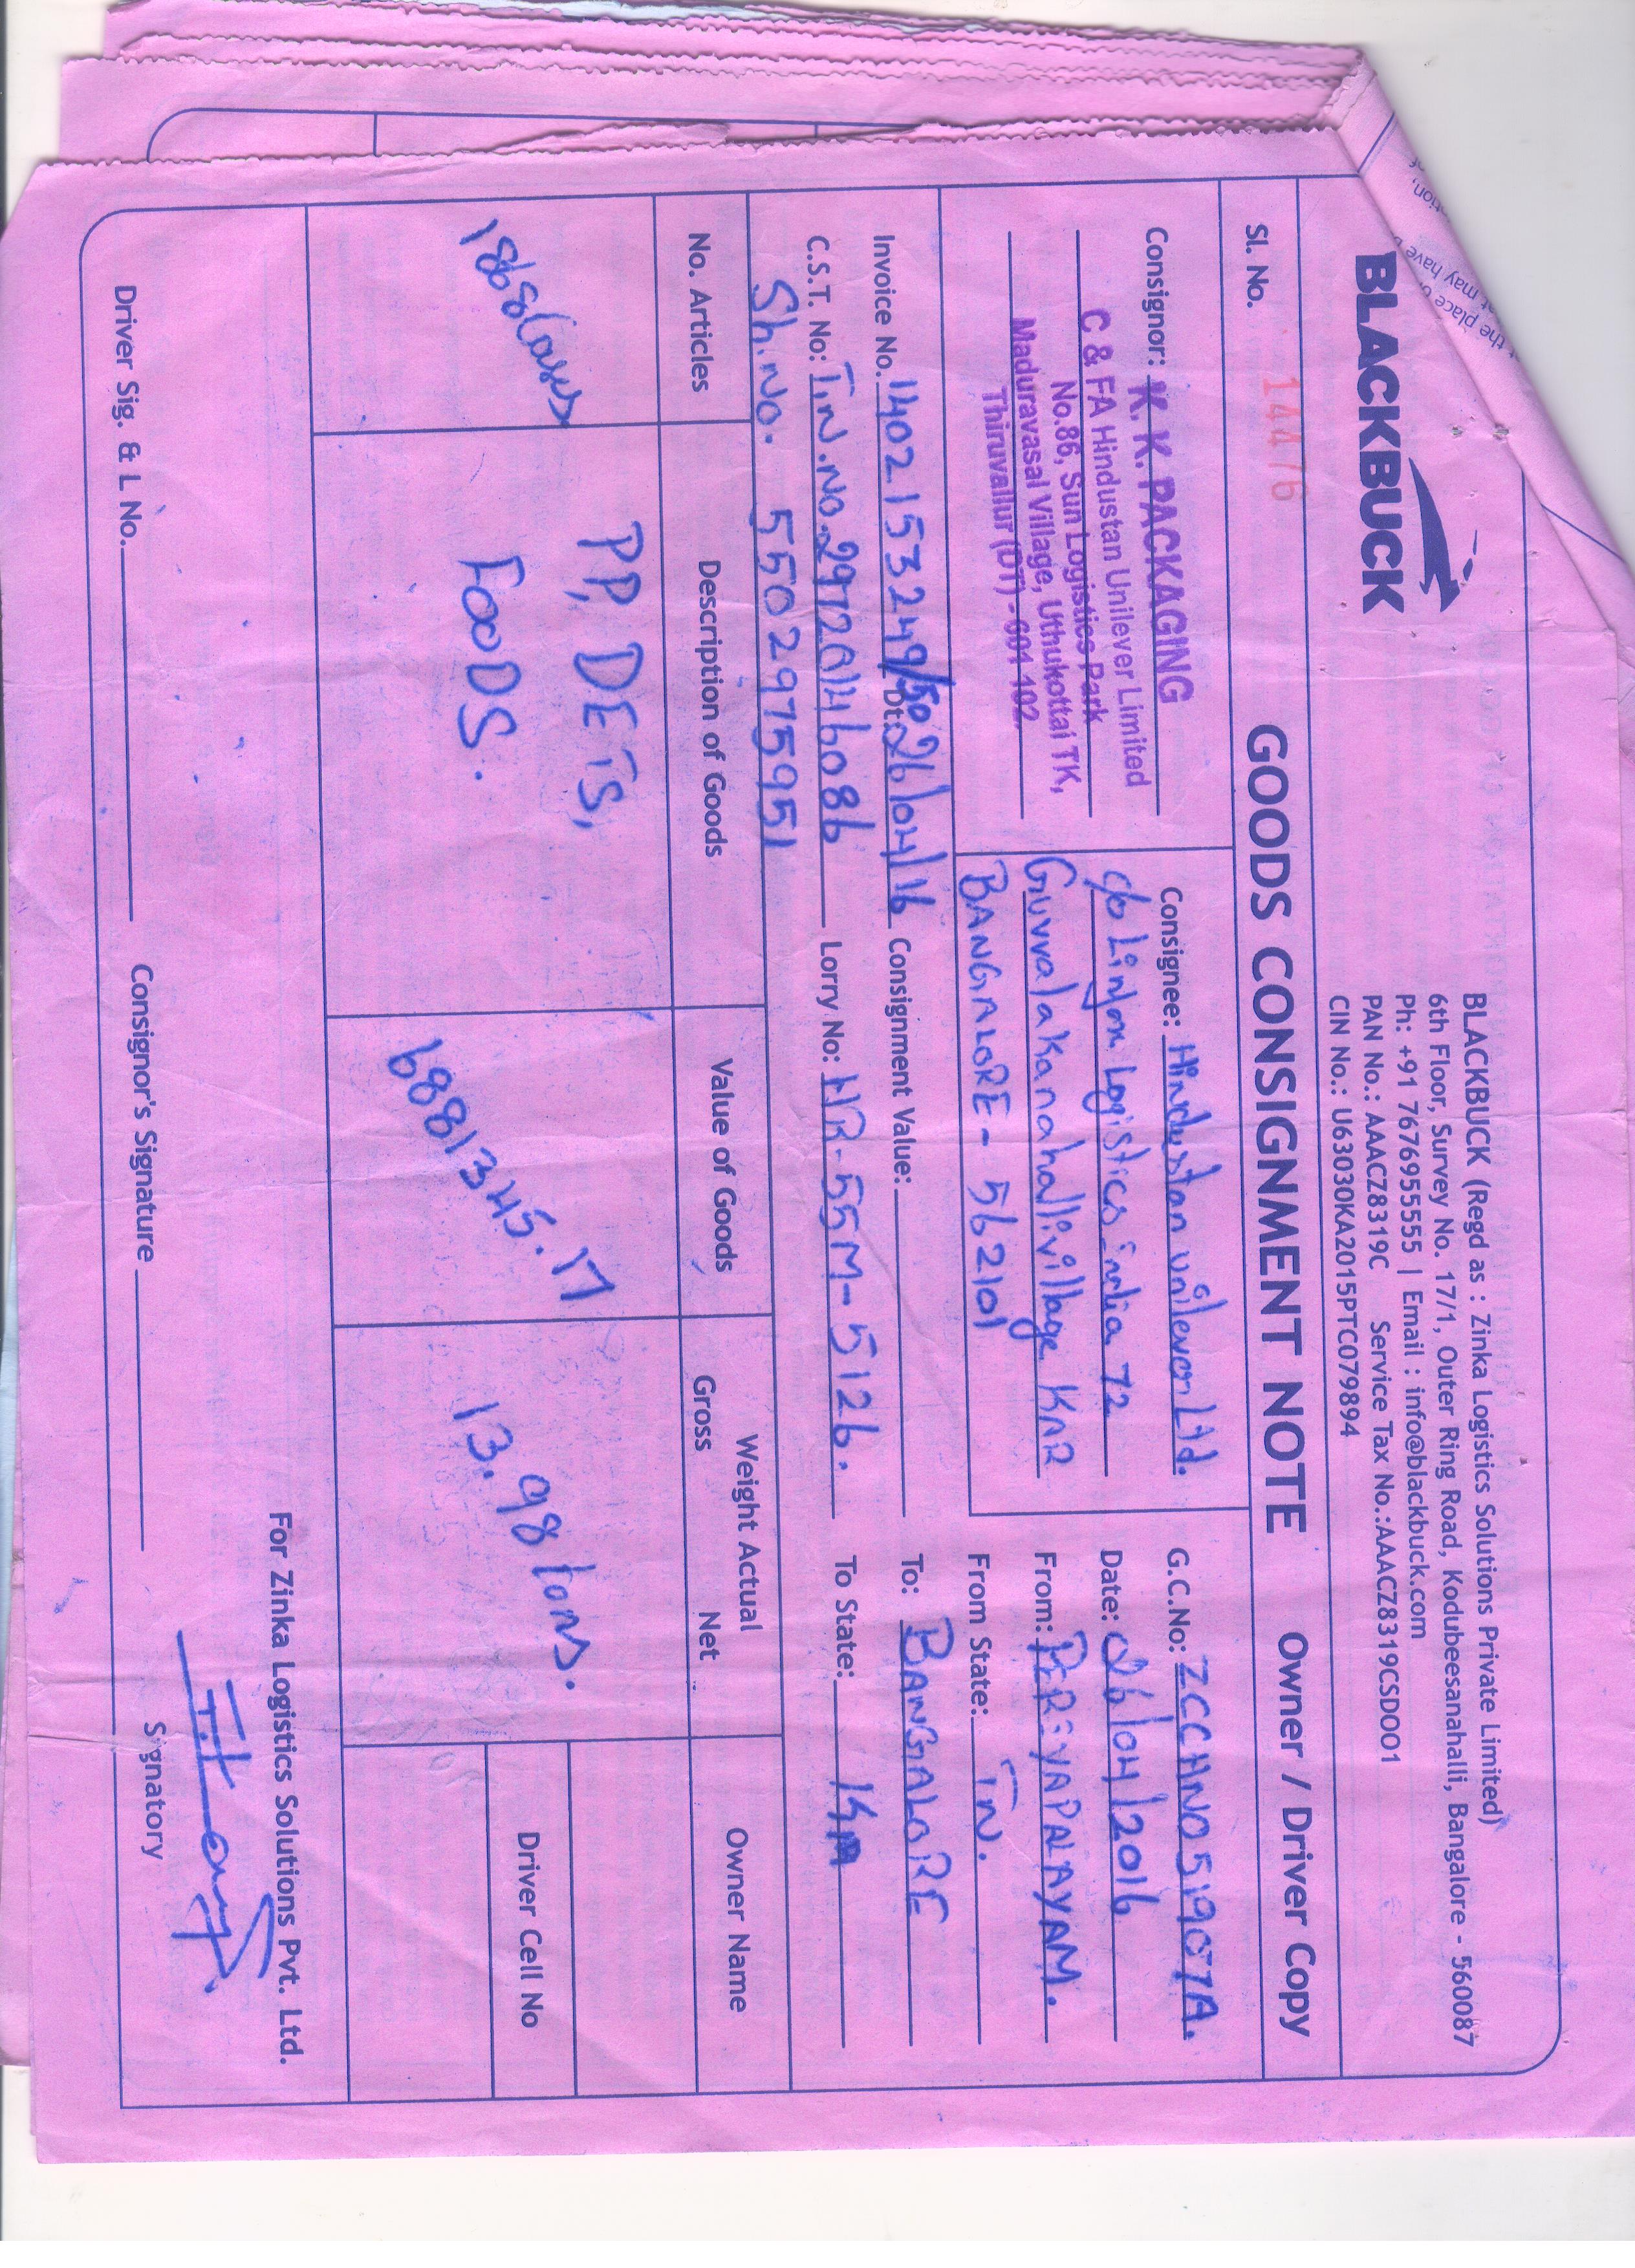 BLACKBUCK
BLACKBUCK (Regd as : Zinka Logistics Solutions Private Limited)
6th Floor, Survey No. 17/1, Outer Ring Road, Kodubeesanahalli, Bangalore - 560087
Ph: +91 7676955555 | Email : info@blackbuck.com
PAN No.: AAACZ8319C Service Tax No.:AAACZ8319CSD001
CIN No.: U63030KA2015PTC079894
Sl. No. 14476 GOODS CONSIGNMENT NOTE Owner / Driver Copy
Consignor: K. K. PACKAGING
C & FA Hindustan Unilever Limited
No.86, Sun Logistics Park
Maduravasal Village, Uthukottai TK,
Thiruvallur (DT) - 601 102
Consignee: Hindustan unilever Ltd.
c/o Linfox Logistics India 72
Guvvalakanahallivillage KAR
BANGALORE - 562101
G.C.No: ZCCHNO51907A.
Date: 26/04/2016
From: PERIYAPALAYAM.
From State: TN.
To: BANGALORE
To State: KA
Invoice No. 1402153249/50 Dt: 26/04/16 Consignment Value:
C.S.T. No: T.N.NO.29720146086 Lorry No: HR-55M-5126.
Sh.No. 5502975951
No. Articles Description of Goods Value of Goods Weight Actual Owner Name
Gross Net
1868 Cases PP, DETS, 6881345.17 13.98 tons.
FOODS.
Driver Cell No
For Zinka Logistics Solutions Pvt. Ltd.
Driver Sig. & L No. Consignor's Signature Signatory